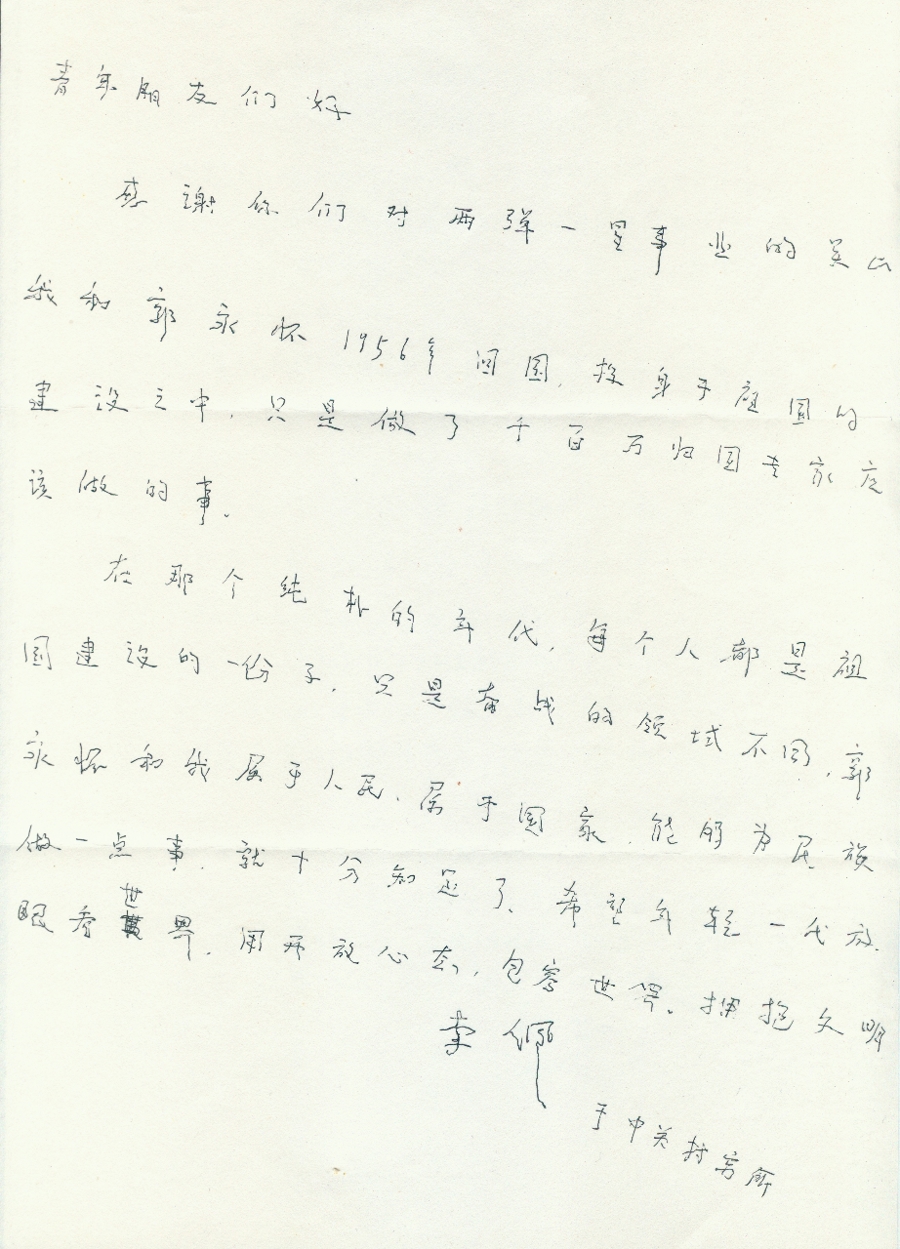 青年朋友们好
感谢你们对两弹一星事业的关心
我和郭永怀1956年回国,投身于祖国的
建设之中,只是做了千百万归国专家应
该做的事。
在那个纯朴的年代,每个人都是祖
国建设的一份子,只是奋战的领域不同,郭
永怀和我属于人民、属于国家,能够为民族
做一点事,就十分知足了、希望年轻一代放
眼看世界,用开放心态,包容世界。拥抱文明
李佩
于中关村寓所